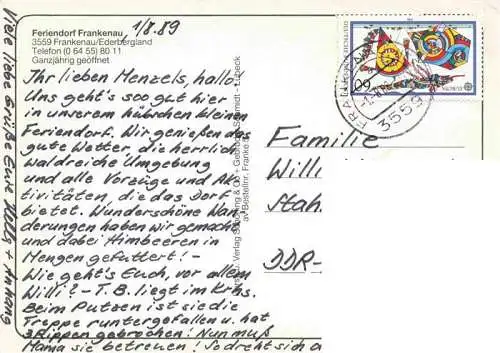 Feriendorf Frankenau
3559 Frankenau/Ederbergland
Telefon (0 64 55) 80 11
Ganzjährig geöffnet
1/8.89
Ihr lieben Menzels, hallo,
Uns geht's soo gut hier
in unserem hübschen kleinen
Feriendorf. Wir genießen das
gute Wetter, die herrlich
waldreiche Umgebung
und alle Vorzüge und Ak-
tivitäten, die das Dorf
bietet. Wunderschöne Wan-
derungen haben wir gemacht
und dabei Himbeeren in
Mengen gefuttert! -
Wie geht's Euch, vor allem
Willi? - T.B. liegt im Krhs.
Beim Putzen ist sie die
Treppe runtergefallen u. hat
3 Rippen gebrochen! Nun muß
Mama sie betreuen! So dreht sich
Viele liebe Grüße Eure + Anhang
Verlag Schöning & Co + Gebrüder Schmidt, Lübeck
Bestellnr. Franke
60
3559
Familie
Willi
Stah
DDR-